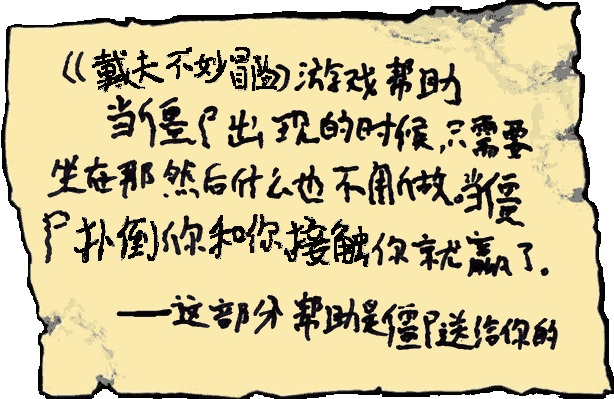 《戴夫不妙冒险》游戏帮助
当僵尸出现的时候，只需要
坐在那然后什么也不用做。当僵
尸扑倒你和你接触你就赢了。
——这部分帮助是僵尸送给你的